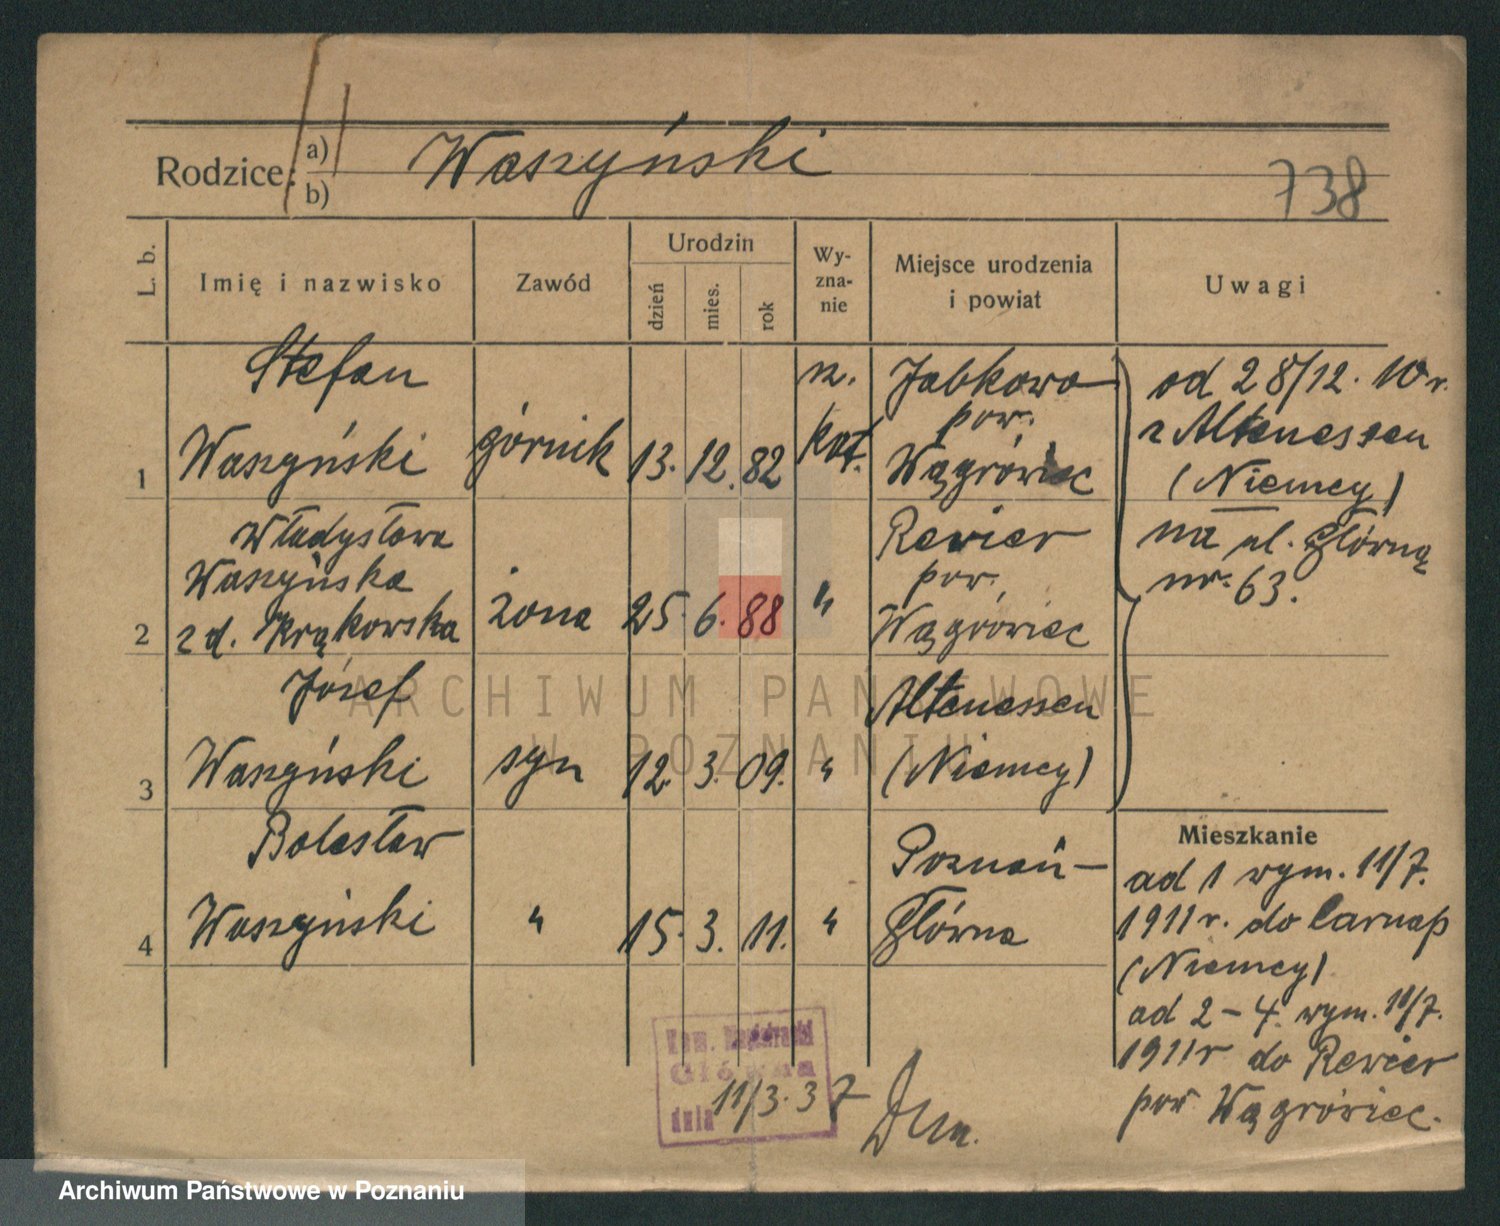 Rodzice: a) Waszyński
b)
738
L. b.
Imię i nazwisko
Zawód
Urodzin
dzień
mies.
rok
Wy-
zna-
nie
Miejsce urodzenia
i powiat
Uwagi
1
Stefan
Waszyński
górnik
13. 12. 82
rz.
kat.
Jabkowo
pow.
Wągrówiec
od 28/12. 10 r.
z Altenessen
(Niemcy)
na ul. Główną
nr. 63.
2
Władysława
Waszyńska
z d. Krąkowska
żona
25. 6. 88
"
Rewier
pow.
Wągrówiec
3
Józef
Waszyński
syn
12. 3. 09.
"
Altenessen
(Niemcy)
4
Bolesław
Waszyński
"
15. 3. 11.
"
Poznań-
Główna
Mieszkanie
ad 1 wym. 11/7.
1911 r. do Carnap
(Niemcy)
ad 2-4. wym. 11/7.
1911 r do Rewier
pow Wągrówiec.
Kom.
Główna
dnia 11/3. 37
ARCHIWUM PAŃSTWOWE
W POZNANIU
Archiwum Państwowe w Poznaniu